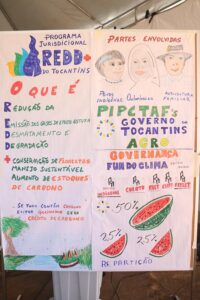 PROGRAMA
JURISDICIONAL
REDD+
DO TOCANTINS
O QUE É
REDUÇÃO DA
EMISSÃO DOS GASES DE EFEITO ESTUFA
DESMATAMENTO E
DEGRADAÇÃO
+ CONSERVAÇÃO DE FLORESTAS
MANEJO SUSTENTÁVEL
AUMENTO DE ESTOQUES
DE CARBONO
SE TUDO
SEU
CRÉDITO DE CARBONO
PARTES ENVOLVIDAS
POVOS
INDÍGENAS
QUILOMBOLAS
AGRICULTURA
FAMILIAR
PIPCTAF's
GOVERNO DO
TOCANTINS
AGRO
GOVERNANÇA
FUNDO CLIMA
50%
25%
25%
REPARTIÇÃO